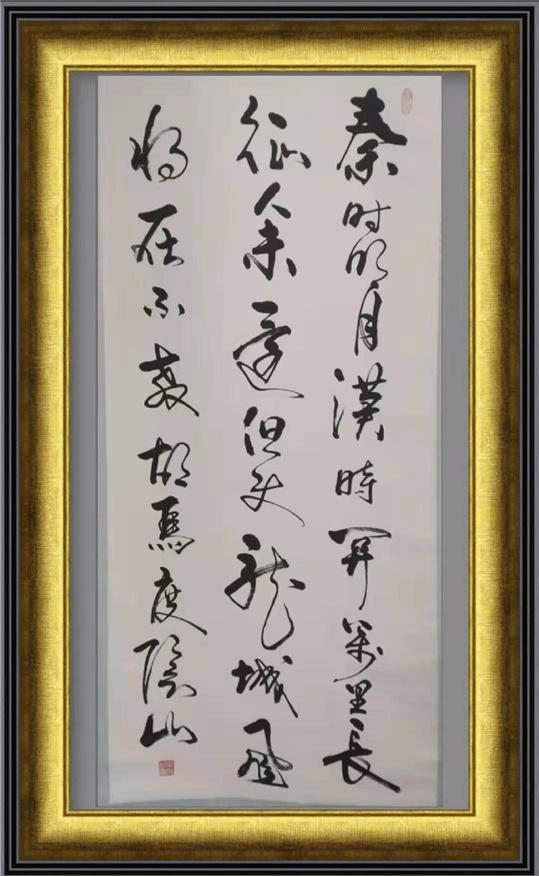 秦时明月漢時關萬里長
征人未還但使龍城飛
将在不教胡馬度陰山